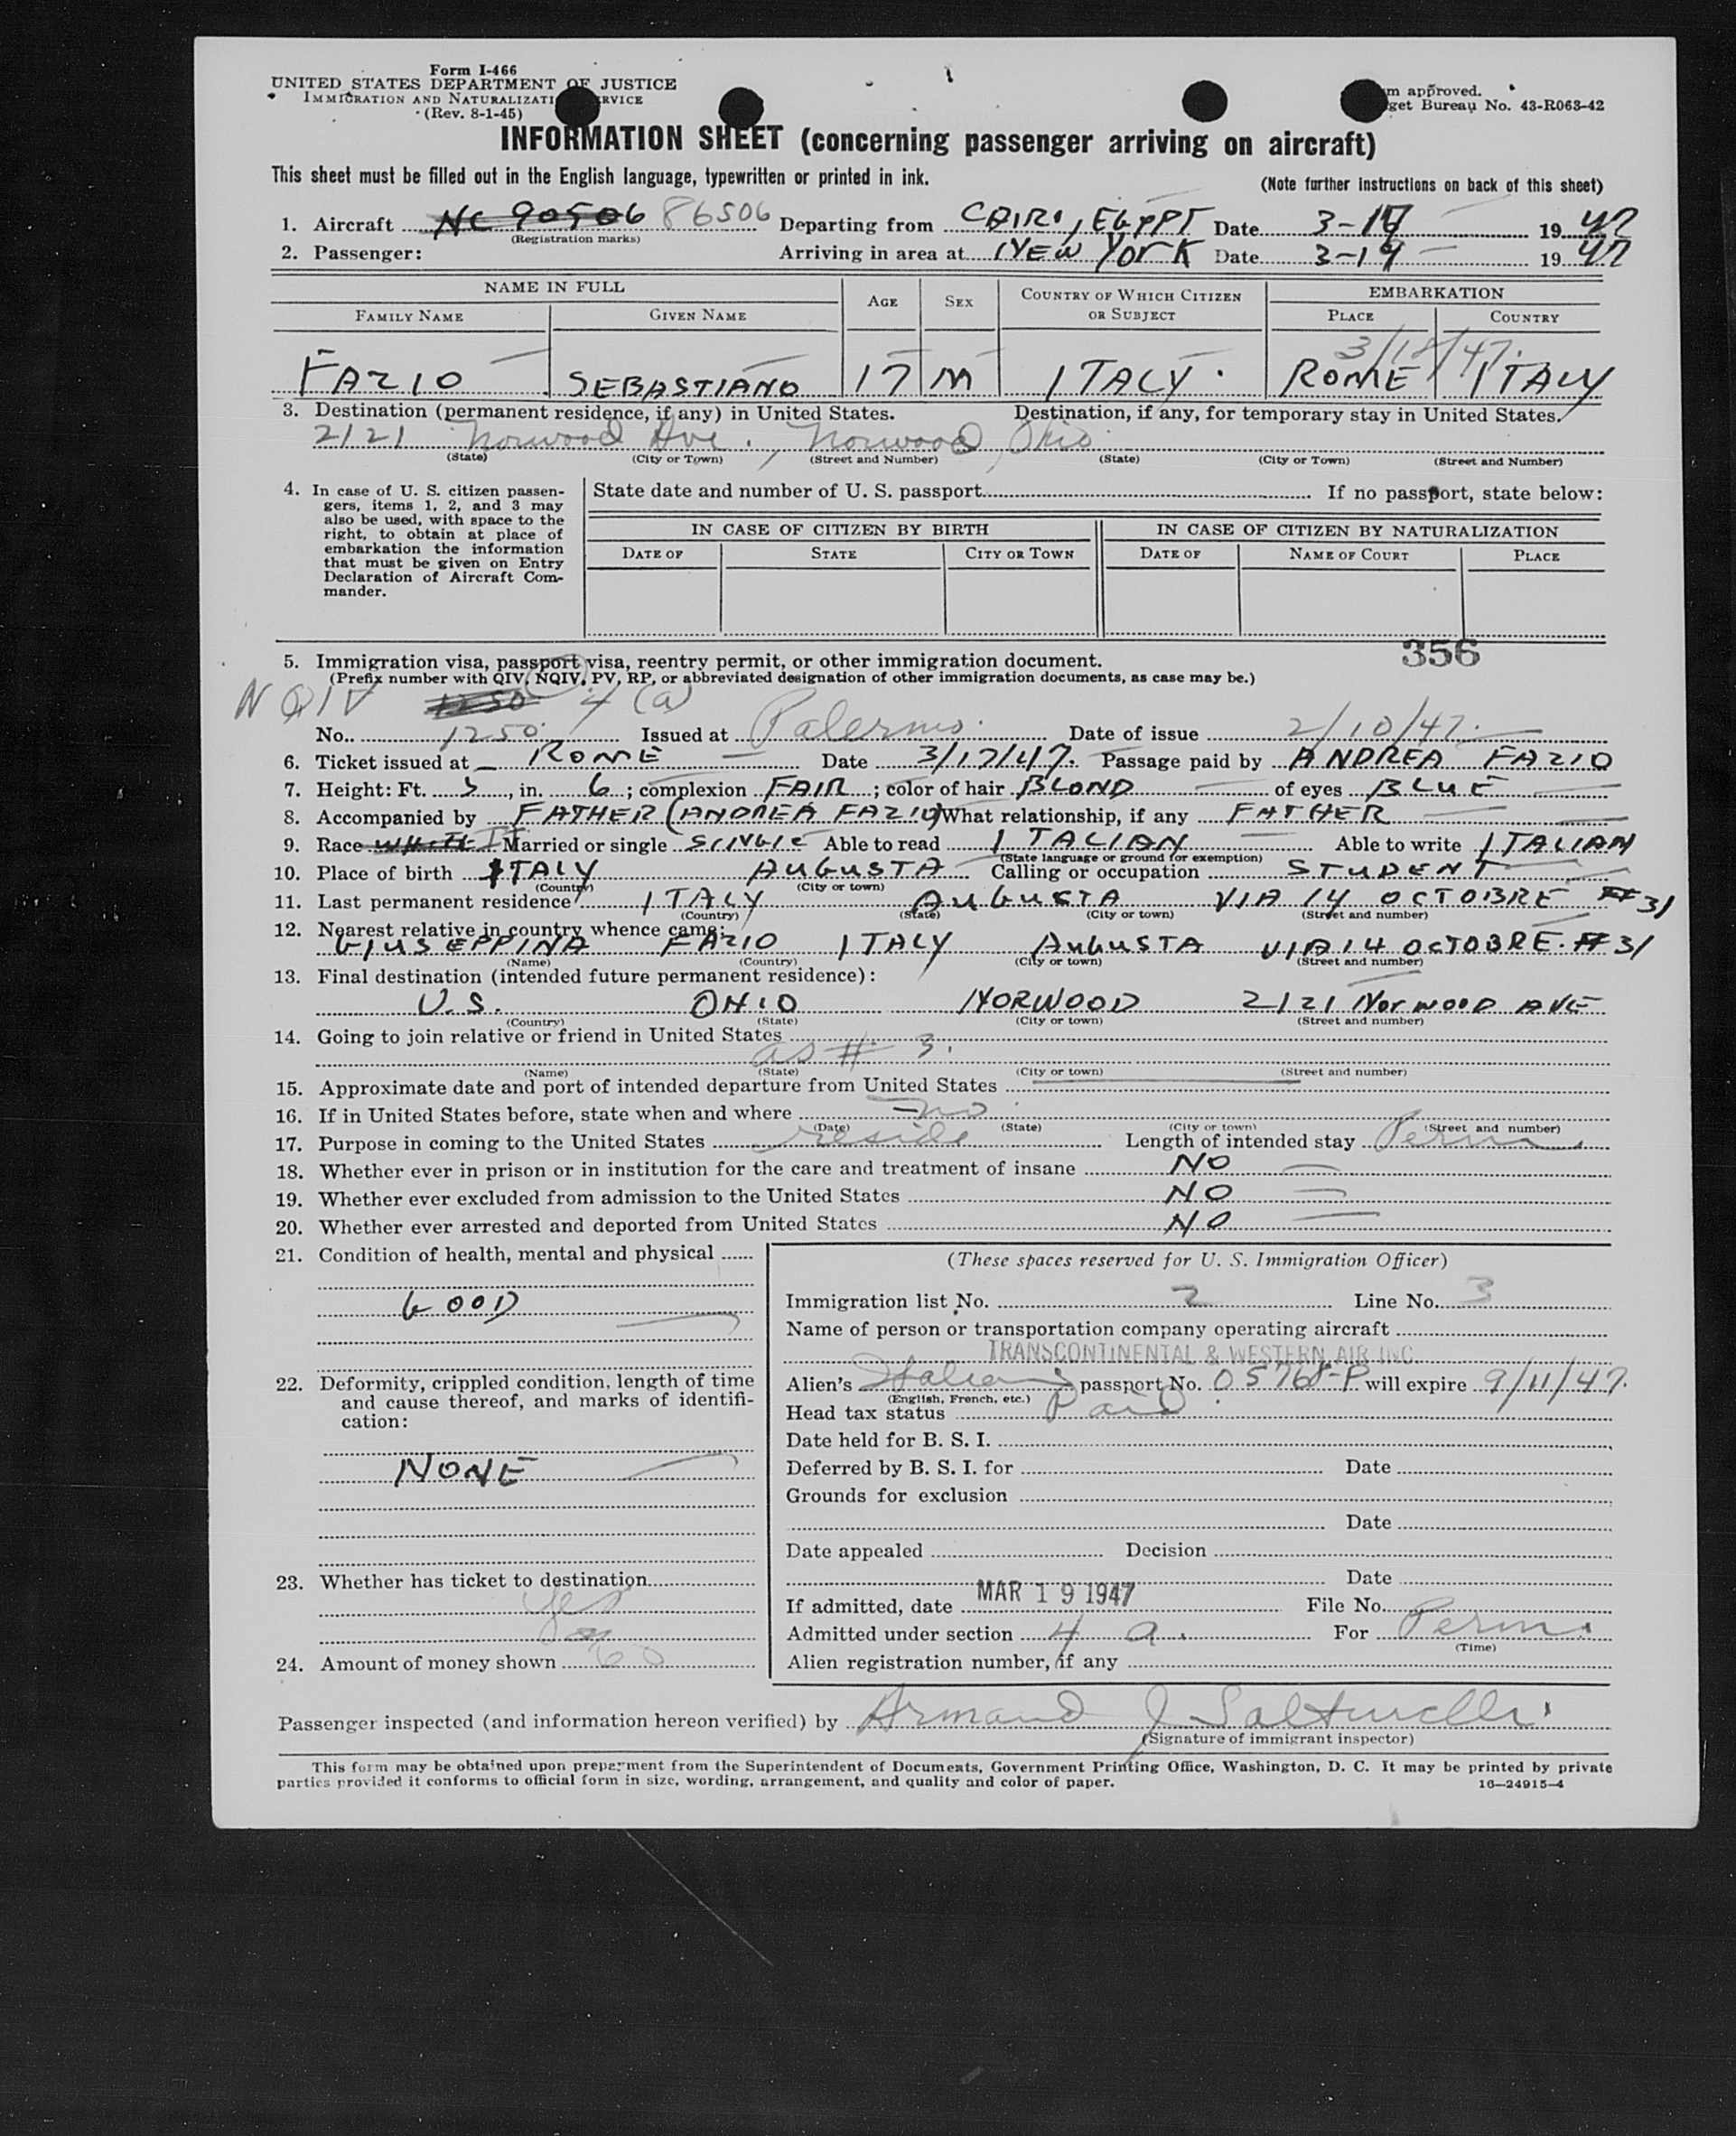 Form I-466
UNITED STATES DEPARTMENT OF JUSTICE
IMMIGRATION AND NATURALIZATI RVICE
(Rev. 8-1-45)
m approved.
get Bureau No. 43-R063-42
INFORMATION SHEET (concerning passenger arriving on aircraft)
This sheet must be filled out in the English language, typewritten or printed in ink.
(Note further instructions on back of this sheet)
1. Aircraft NC 90506 86506 Departing from CAIRO, EGYPT Date 3-17 1947
(Registration marks)
2. Passenger: Arriving in area at NEW YORK Date 3-19 1947
NAME IN FULL AGE SEX COUNTRY OF WHICH CITIZEN OR SUBJECT EMBARKATION
FAMILY NAME GIVEN NAME PLACE COUNTRY
3/18/47.
FAZIO SEBASTIANO 17 M ITALY ROME ITALY
3. Destination (permanent residence, if any) in United States. Destination, if any, for temporary stay in United States.
2121 Norwood Ave., Norwood, Ohio
(State) (City or Town) (Street and Number) (State) (City or Town) (Street and Number)
4. In case of U. S. citizen passengers, items 1, 2, and 3 may also be used, with space to the right, to obtain at place of embarkation the information that must be given on Entry Declaration of Aircraft Commander.
State date and number of U. S. passport If no passport, state below:
IN CASE OF CITIZEN BY BIRTH IN CASE OF CITIZEN BY NATURALIZATION
DATE OF STATE CITY OR TOWN DATE OF NAME OF COURT PLACE
356
5. Immigration visa, passport visa, reentry permit, or other immigration document.
(Prefix number with QIV, NQIV, PV, RP, or abbreviated designation of other immigration documents, as case may be.)
NQIV 1250 4 (a)
No. 1250 Issued at Palermo. Date of issue 2/10/47.
6. Ticket issued at ROME Date 3/17/47. Passage paid by ANDREA FAZIO
7. Height: Ft. 5, in. 6; complexion FAIR; color of hair BLOND of eyes BLUE
8. Accompanied by FATHER (ANDREA FAZIO) What relationship, if any FATHER
9. Race WHITE IT Married or single SINGLE Able to read ITALIAN Able to write ITALIAN
(State language or ground for exemption)
10. Place of birth ITALY AUGUSTA Calling or occupation STUDENT
(Country) (City or town)
11. Last permanent residence ITALY AUGUSTA VIA 14 OCTOBRE #31
(Country) (State) (City or town) (Street and number)
12. Nearest relative in country whence came:
GIUSEPPINA FAZIO ITALY AUGUSTA VIA 14 OCTOBRE. #31
(Name) (Country) (City or town) (Street and number)
13. Final destination (intended future permanent residence):
U.S. OHIO NORWOOD 2121 NORWOOD AVE
(Country) (State) (City or town) (Street and number)
14. Going to join relative or friend in United States
as # 3.
(Name) (State) (City or town) (Street and number)
15. Approximate date and port of intended departure from United States
16. If in United States before, state when and where no
(Date) (State) (City or town) (Street and number)
17. Purpose in coming to the United States reside Length of intended stay Perm.
18. Whether ever in prison or in institution for the care and treatment of insane NO
19. Whether ever excluded from admission to the United States NO
20. Whether ever arrested and deported from United States NO
21. Condition of health, mental and physical
GOOD
22. Deformity, crippled condition, length of time and cause thereof, and marks of identification:
NONE
23. Whether has ticket to destination
Yes
24. Amount of money shown 60
(These spaces reserved for U. S. Immigration Officer)
Immigration list No. 2 Line No. 3
Name of person or transportation company operating aircraft
TRANSCONTINENTAL & WESTERN AIR INC.
Alien's Italian passport No. 05768-P will expire 9/11/47.
(English, French, etc.)
Head tax status Paid
Date held for B. S. I.
Deferred by B. S. I. for Date
Grounds for exclusion
Date
Date appealed Decision
Date
If admitted, date MAR 19 1947 File No.
Admitted under section 4 a. For Perm.
(Time)
Alien registration number, if any
Passenger inspected (and information hereon verified) by Armand J
(Signature of immigrant inspector)
This form may be obtained upon prepayment from the Superintendent of Documents, Government Printing Office, Washington, D. C. It may be printed by private
parties provided it conforms to official form in size, wording, arrangement, and quality and color of paper.
16—24915-4